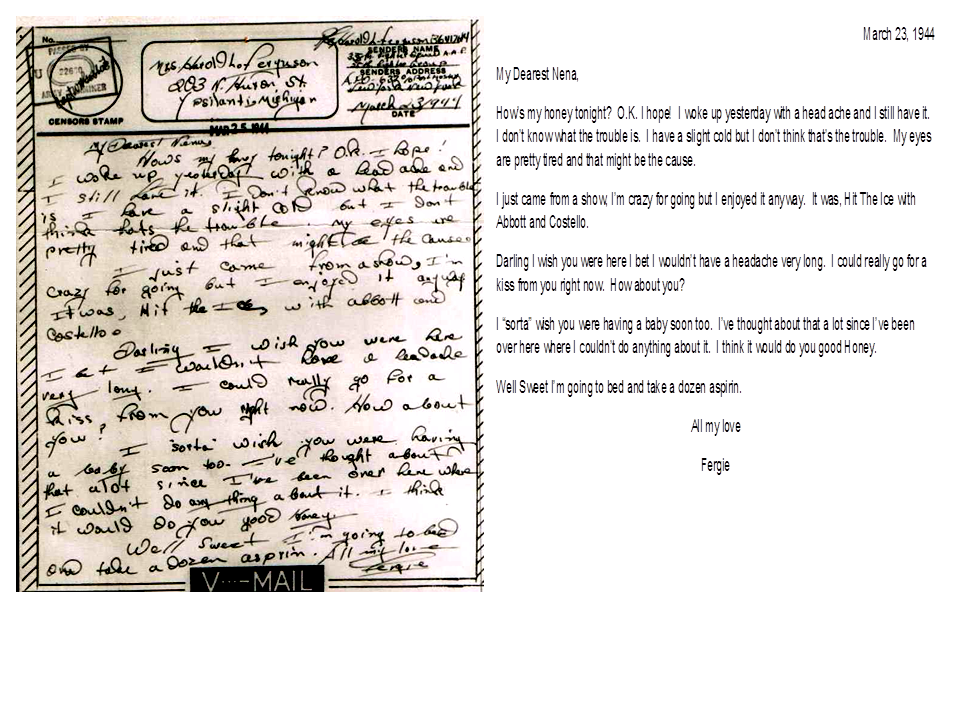 No.
PASSED BY
U
22610
ARMY EXAMINER
CENSORS STAMP
Mrs. Harold L. Ferguson
203 N. Huron St.
Ypsilanti Michigan
SENDERS NAME
SENDERS ADDRESS
New York New York
March 23, 1944
DATE
MAR 25 1944
My Dearest Nena,
Hows my honey tonight? O.K. I hope!
I woke up yesterday with a head ache and
I still have it. I don't know what the trouble
is. I have a slight cold but I don't
think thats the trouble. My eyes are
pretty tired and that might be the cause.
I just came from a show, I'm
crazy for going but I enjoyed it anyway
It was, Hit the Ice with abbott and
Costello.
Darling I wish you were here
I bet I wouldn't have a headache
very long. I could really go for a
kiss from you right now. How about
you?
I "sorta" wish you were having
a baby soon too. I've thought about
that alot since I've been over here where
I couldn't do any thing about it. I think
it would do you good Honey.
Well Sweet I'm going to bed
and take a dozen asprin. All my love
Fergie
V···—MAIL
March 23, 1944
My Dearest Nena,
How's my honey tonight? O.K. I hope! I woke up yesterday with a head ache and I still have it.
I don't know what the trouble is. I have a slight cold but I don't think that's the trouble. My eyes
are pretty tired and that might be the cause.
I just came from a show, I'm crazy for going but I enjoyed it anyway. It was, Hit The Ice with
Abbott and Costello.
Darling I wish you were here I bet I wouldn't have a headache very long. I could really go for a
kiss from you right now. How about you?
I "sorta" wish you were having a baby soon too. I've thought about that a lot since I've been
over here where I couldn't do anything about it. I think it would do you good Honey.
Well Sweet I'm going to bed and take a dozen aspirin.
All my love
Fergie